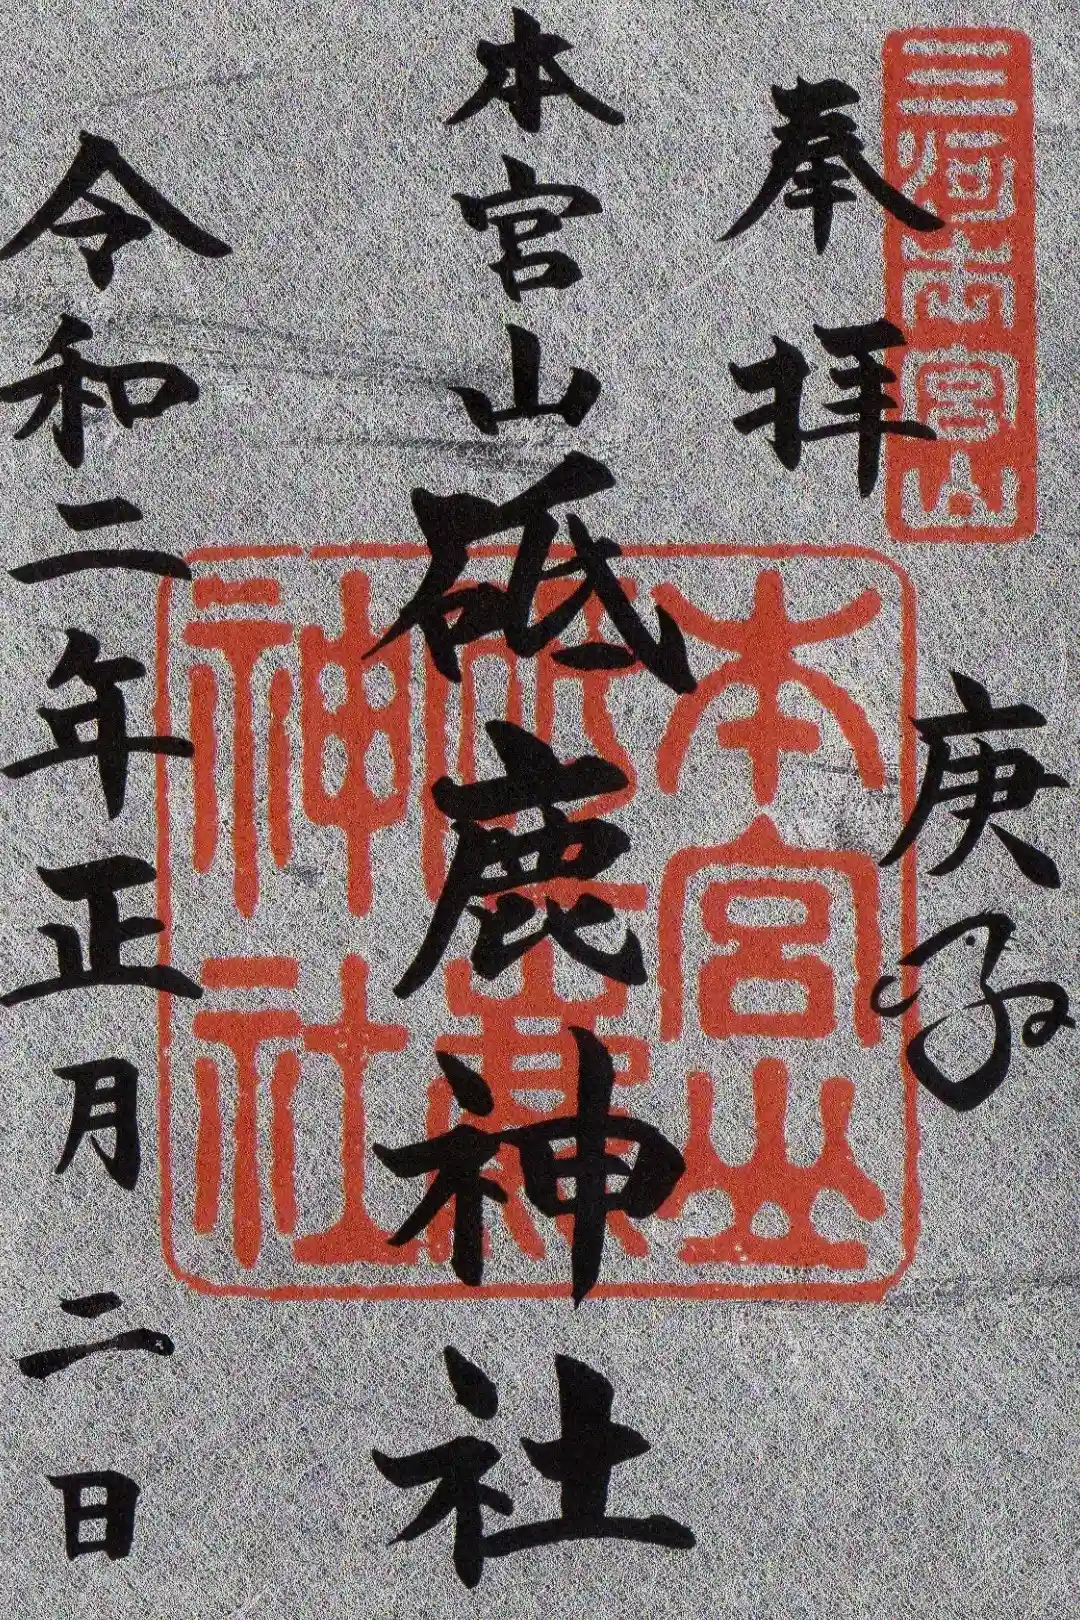 三河本宮山
奉拝
庚子
本宮山
砥鹿神社
本宮山
砥鹿
神社
令和二年正月二日